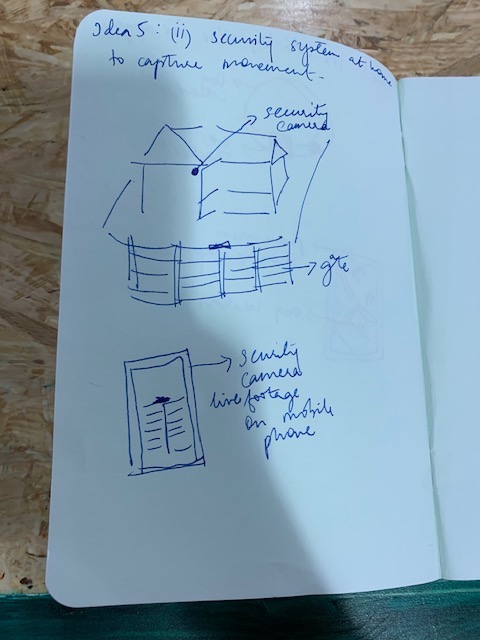 Idea 5: (ii) security system at home
to capture movement.
security
camera
gate
security
camera
live footage
on mobile
phone